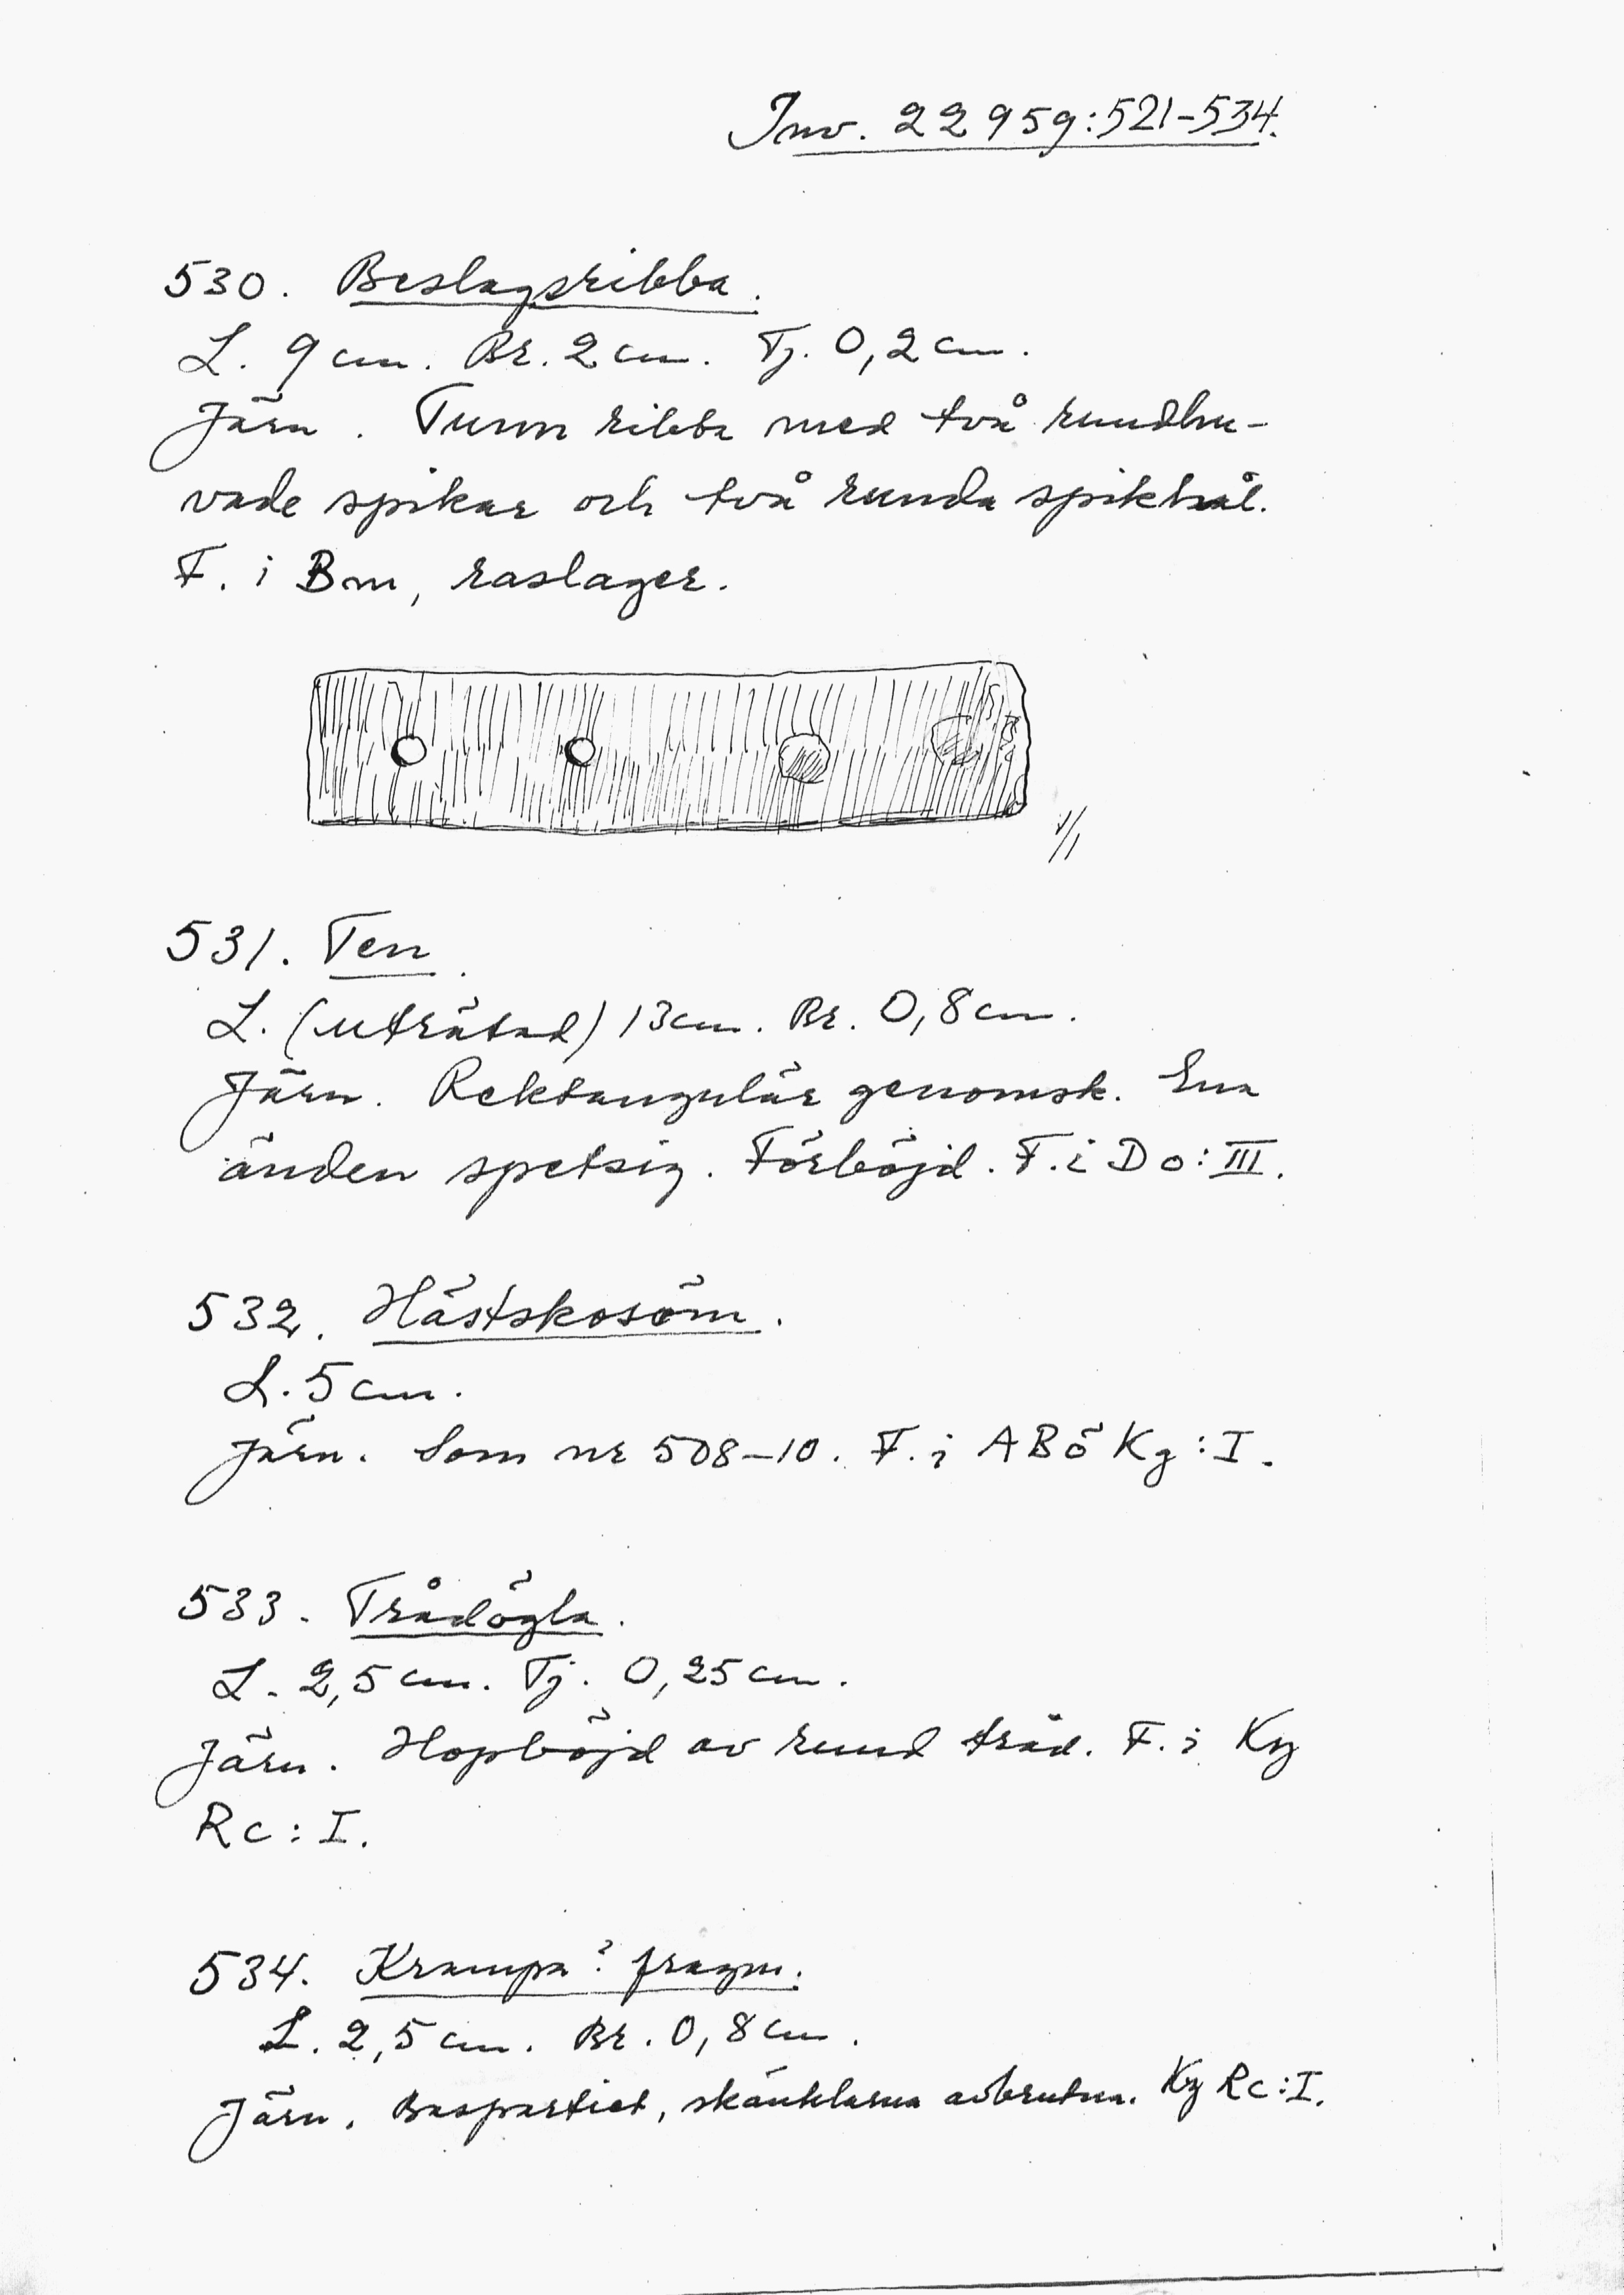 Inv. 22959:521-534.
530. Beslagsribba.
L. 9 cm. Br. 2 cm. Tj. 0,2 cm.
Järn. Tunn ribba med två rundhu-
vade spikar och två runda spikhål.
F. i Bm, raslager.
1/1
531. Ten.
L. (uträtad) 13 cm. Br. 0,8 cm.
Järn. Rektangulär genomsk. Ena
änden spetsig. Förböjd. F. i Do: III.
532. Hästskosöm.
L. 5 cm.
Järn. Som nr 508-10. F. i ABö Kg: I.
533. Trådögla.
L. 2,5 cm. Tj. 0,25 cm.
Järn. Hopböjd av rund tråd. F. i Kg
Rc: I.
534. Krampa? fragm.
L. 2,5 cm. Br. 0,8 cm.
Järn. Baspartiet, skänklarna avbrutna. Kg Rc: I.